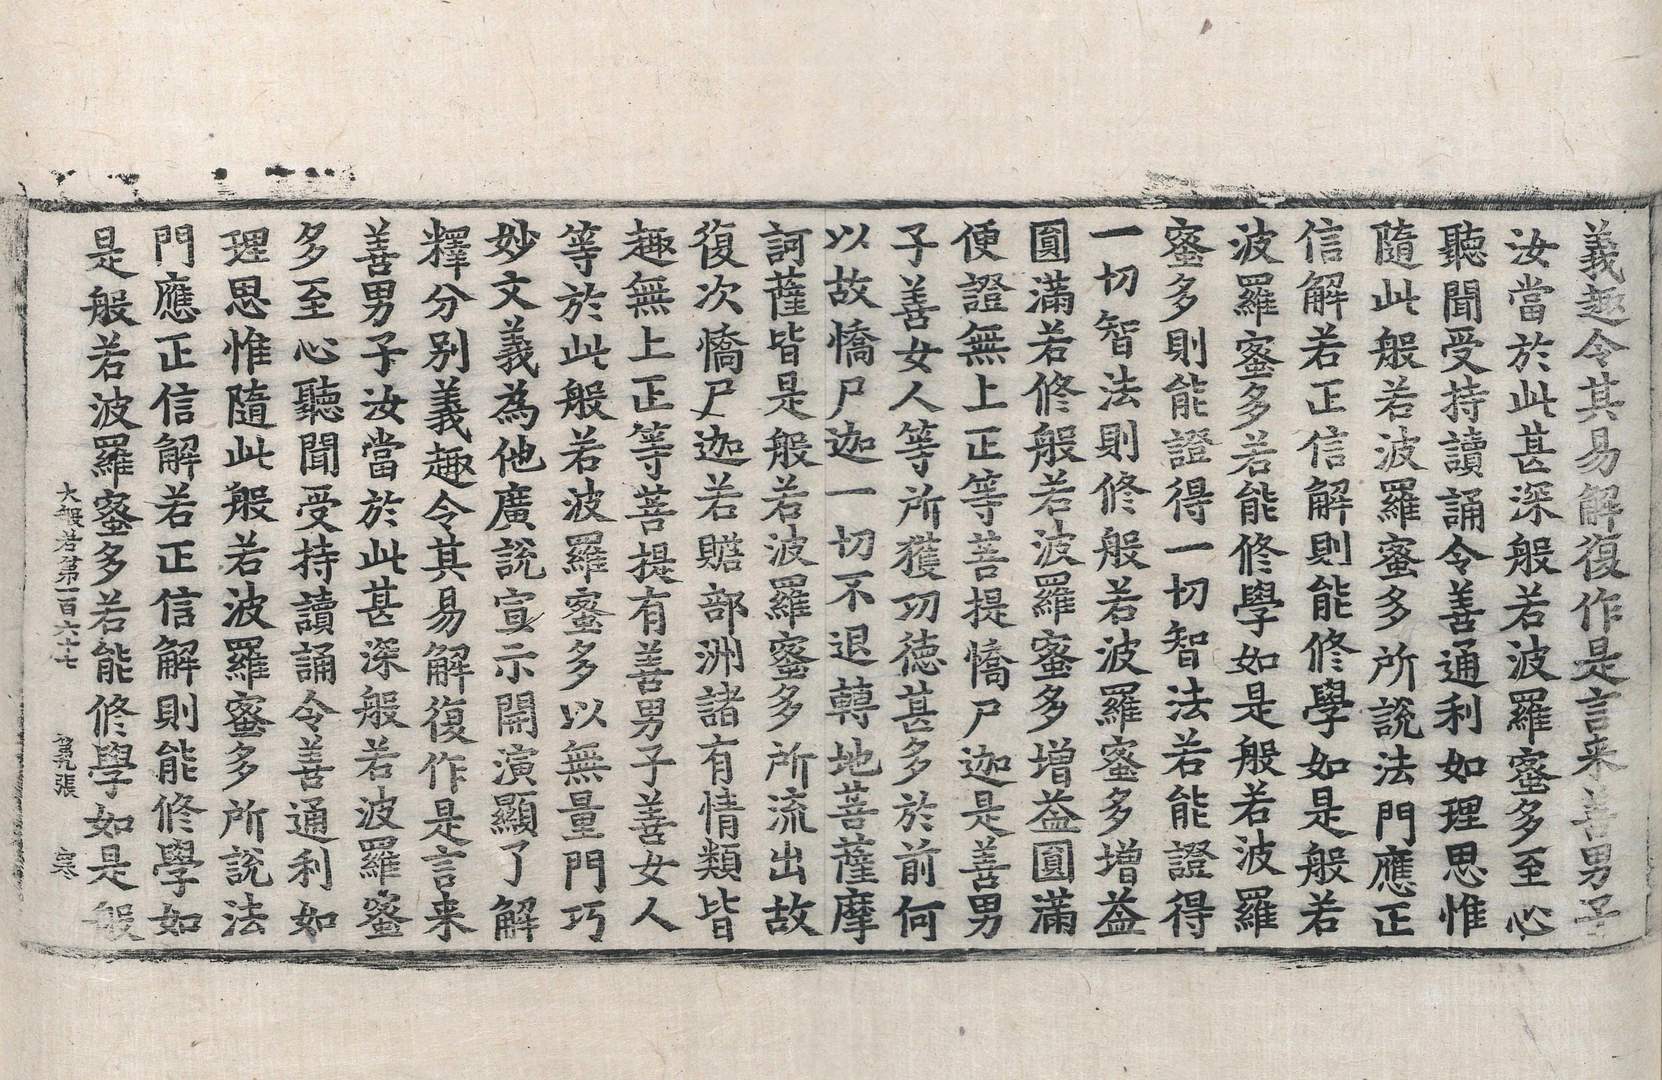 義趣令其易解復作是言来善男子
汝當於此甚深般若波羅蜜多至心
聽聞受持讀誦令善通利如理思惟
隨此般若波羅蜜多所說法門應正
信解若正信解則能修學如是般若
波羅蜜多若能修學如是般若波羅
蜜多則能證得一切智法若能證得
一切智法則修般若波羅蜜多增益
圓滿若修般若波羅蜜多增益圓滿
便證無上正等菩提憍尸迦是善男
子善女人等所獲功德甚多於前何
以故憍尸迦一切不退轉地菩薩摩
訶薩皆是般若波羅蜜多所流出故
復次憍尸迦若贍部洲諸有情類皆
趣無上正等菩提有善男子善女人
等於此般若波羅蜜多以無量門巧
妙文義為他廣說宣示開演顯了解
釋分別義趣令其易解復作是言来
善男子汝當於此甚深般若波羅蜜
多至心聽聞受持讀誦令善通利如
理思惟隨此般若波羅蜜多所說法
門應正信解若正信解則能修學如
是般若波羅蜜多若能修學如是般
大般若第一百六十七 第九張 寒